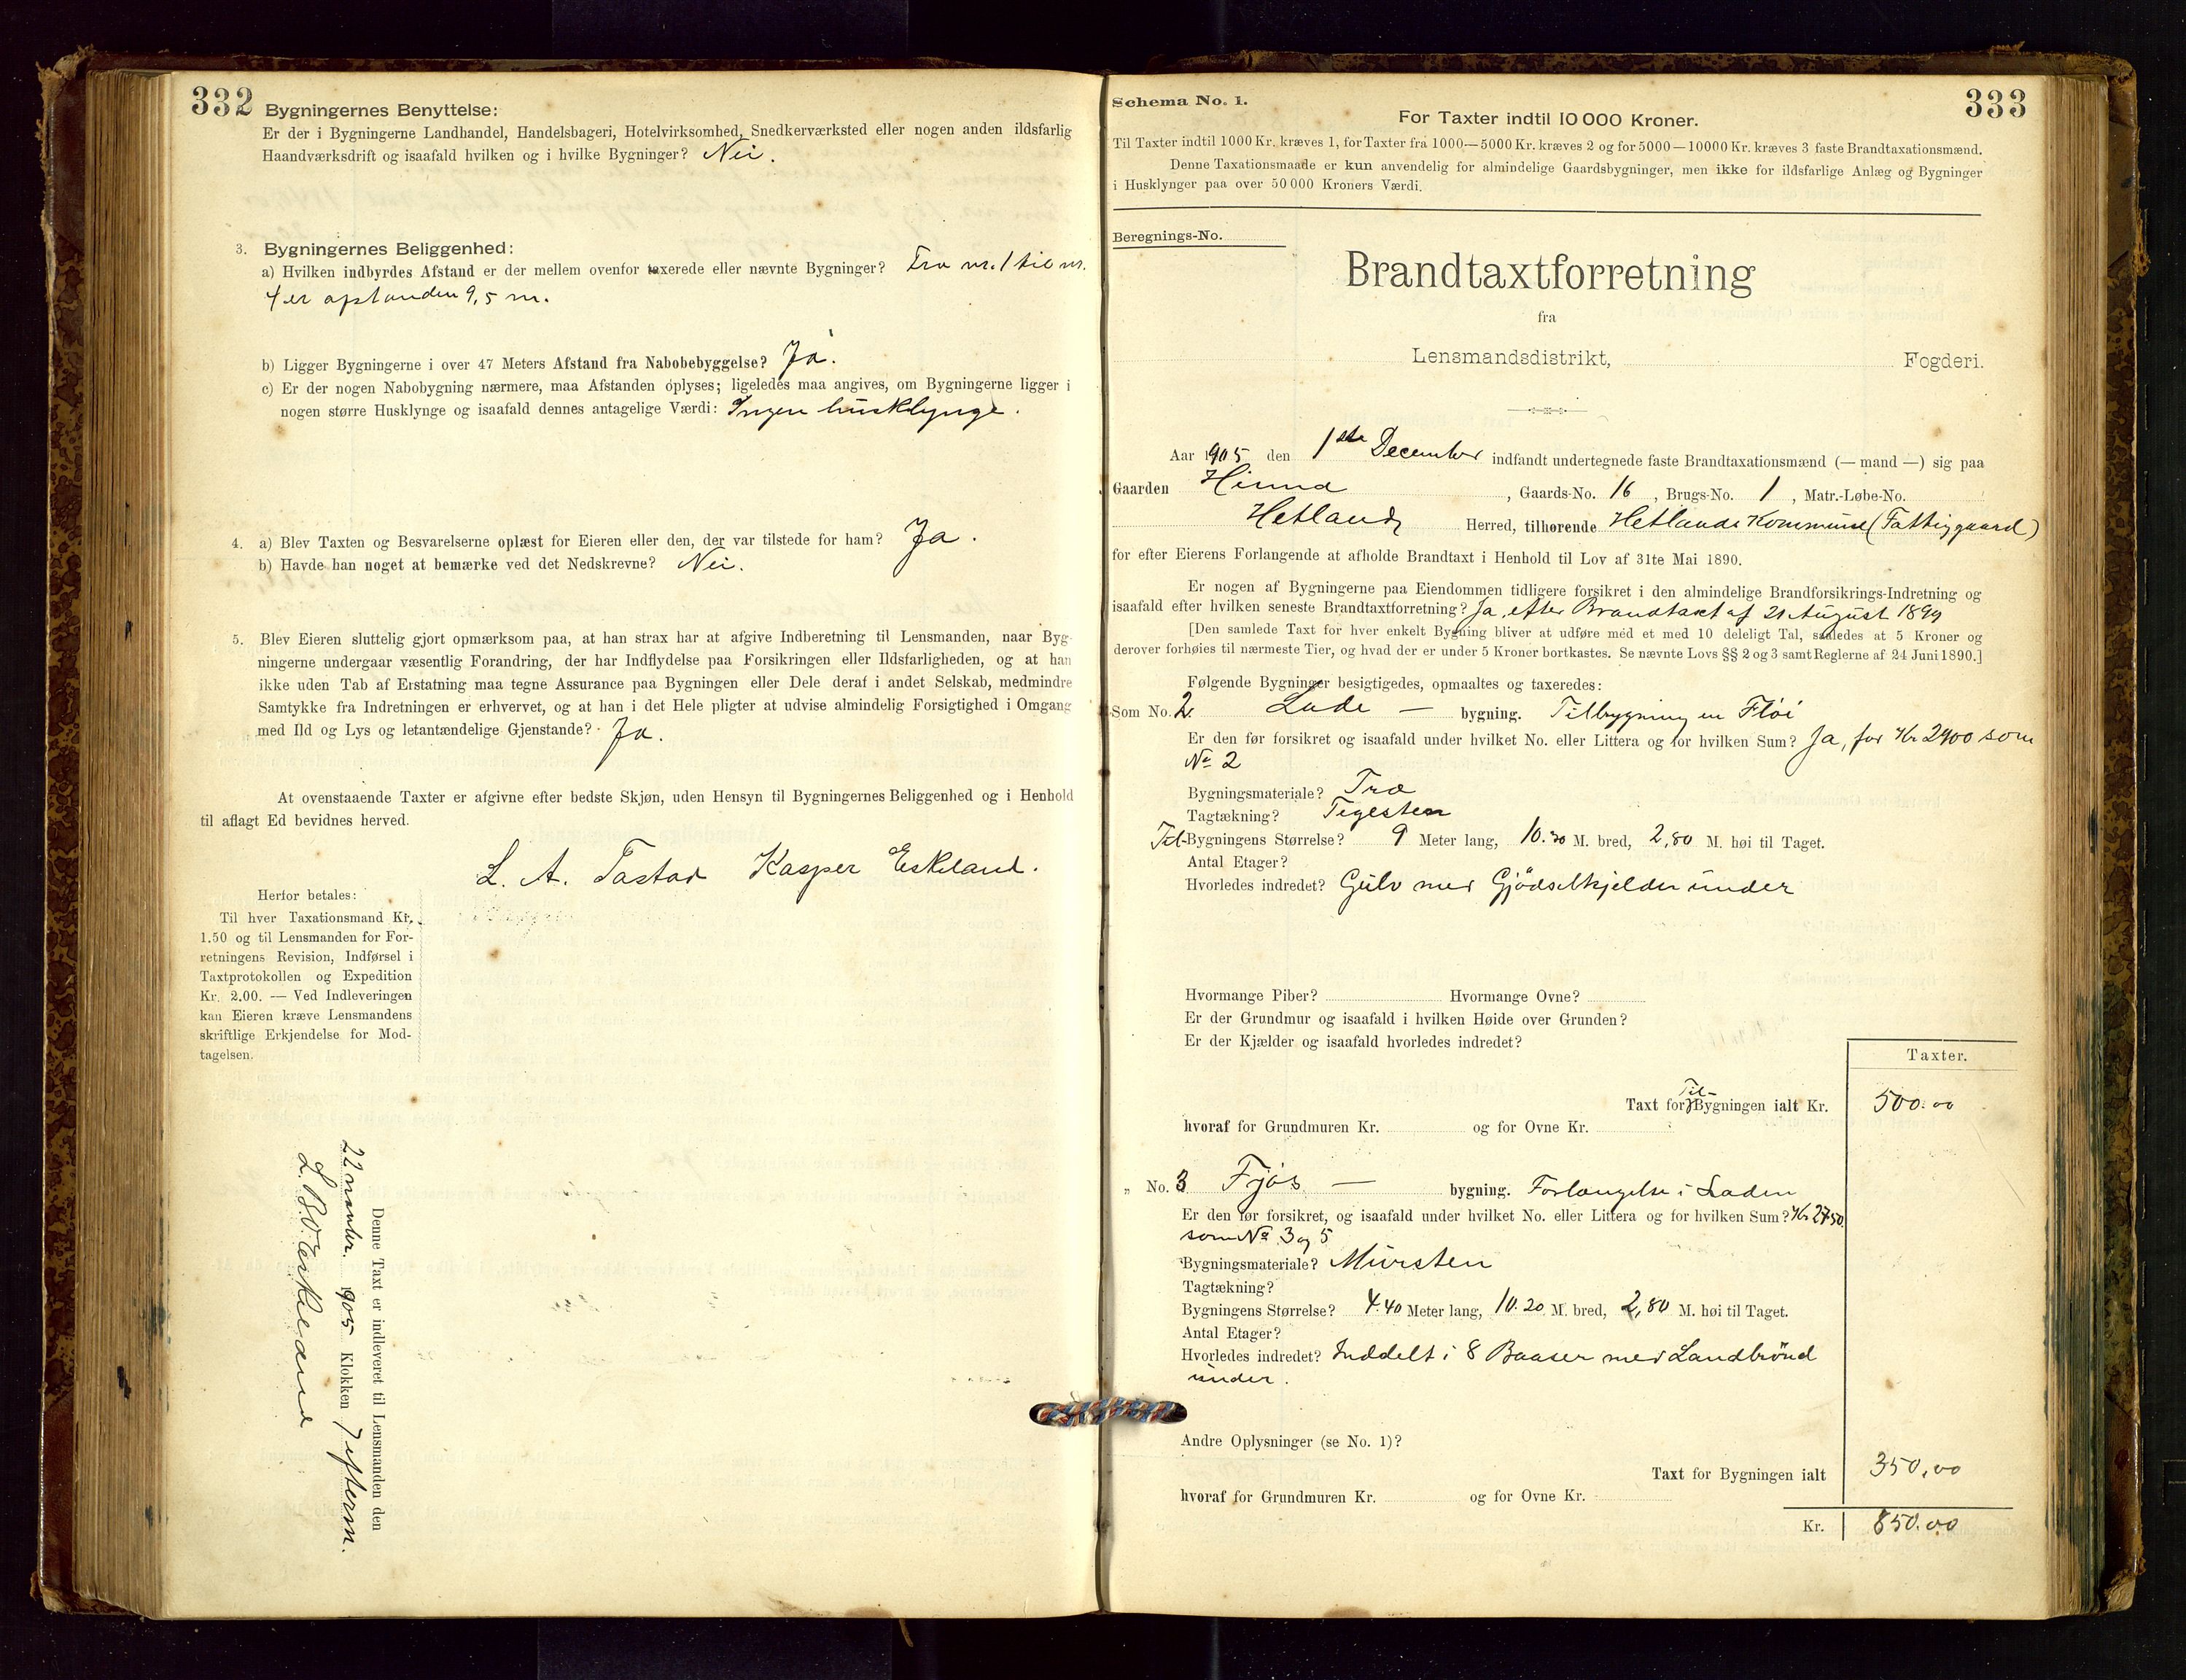 332
Bygningernes Benyttelse:
Er der i Bygningerne Landhandel, Handelsbageri, Hotelvirksomhed, Snedkerværksted eller nogen anden ildsfarlig
Haandværksdrift og isaafald hvilken og i hvilke Bygninger? Nei.
3. Bygningernes Beliggenhed:
a) Hvilken indbyrdes Afstand er der mellem ovenfor taxerede eller nævnte Bygninger? Fra nr. 1 til nr.
4 er afstanden 9,5 m.
b) Ligger Bygningerne i over 47 Meters Afstand fra Nabobebyggelse? Ja.
c) Er der nogen Nabobygning nærmere, maa Afstanden oplyses; ligeledes maa angives, om Bygningerne ligger i
nogen større Husklynge og isaafald dennes antagelige Værdi: Ingen husklynge.
4. a) Blev Taxten og Besvarelserne oplæst for Eieren eller den, der var tilstede for ham? Ja.
b) Havde han noget at bemærke ved det Nedskrevne? Nei.
5. Blev Eieren sluttelig gjort opmærksom paa, at han strax har at afgive Indberetning til Lensmanden, naar Byg-
ningerne undergaar væsentlig Forandring, der har Indflydelse paa Forsikringen eller Ildsfarligheden, og at han
ikke uden Tab af Erstatning maa tegne Assurance paa Bygningen eller Dele deraf i andet Selskab, medmindre
Samtykke fra Indretningen er erhvervet, og at han i det Hele pligter at udvise almindelig Forsigtighed i Omgang
med Ild og Lys og letantændelige Gjenstande? Ja.
At ovenstaaende Taxter er afgivne efter bedste Skjøn, uden Hensyn til Bygningernes Beliggenhed og i Henhold
til aflagt Ed bevidnes herved.
L. A. Tastad Kasper Eskeland.
Herfor betales:
Til hver Taxationsmand Kr.
1.50 og til Lensmanden for For-
retningens Revision, Indførsel i
Taxtprotokollen og Expedition
Kr. 2.00. — Ved Indleveringen
kan Eieren kræve Lensmandens
skriftlige Erkjendelse for Mod-
tagelsen.
Denne Taxt er indleveret til Lensmanden den
22 novmbr. 1905 Klokken 7 efterm.
Eskeland
333
Schema No. 1.
For Taxter indtil 10 000 Kroner.
Til Taxter indtil 1000 Kr. kræves 1, for Taxter fra 1000—5000 Kr. kræves 2 og for 5000—10000 Kr. kræves 3 faste Brandtaxationsmænd.
Denne Taxationsmaade er kun anvendelig for almindelige Gaardsbygninger, men ikke for ildsfarlige Anlæg og Bygninger
i Husklynger paa over 50 000 Kroners Værdi.
Beregnings-No.
Brandtaxtforretning
fra
Lensmandsdistrikt, Fogderi.
Aar 1905 den 1ste December indfandt undertegnede faste Brandtaxationsmænd (— mand —) sig paa
Gaarden Hinna, Gaards-No. 16, Brugs-No. 1, Matr.-Løbe-No.
Hetland Herred, tilhørende Hetlands Kommune (Fattiggaard)
for efter Eierens Forlangende at afholde Brandtaxt i Henhold til Lov af 31te Mai 1890.
Er nogen af Bygningerne paa Eiendommen tidligere forsikret i den almindelige Brandforsikrings-Indretning og
isaafald efter hvilken seneste Brandtaxtforretning? Ja, efter Brandtaxt af 21 August 1899
[Den samlede Taxt for hver enkelt Bygning bliver at udføre med et med 10 deleligt Tal, saaledes at 5 Kroner og
derover forhøies til nærmeste Tier, og hvad der er under 5 Kroner bortkastes. Se nævnte Lovs §§ 2 og 3 samt Reglerne af 24 Juni 1890.]
Følgende Bygninger besigtigedes, opmaaltes og taxeredes:
Som No. 2. Lade — bygning. Tilbygning en Fløi
Er den før forsikret og isaafald under hvilket No. eller Littera og for hvilken Sum? Ja, for Kr 2900 som
No 2
Bygningsmateriale? Træ
Tagtækning? Tegesten
Til-Bygningens Størrelse? 9 Meter lang, 10.20 M. bred, 2,80 M. høi til Taget.
Antal Etager?
Hvorledes indredet? Gulv med Gjødselkjelder under
Hvormange Piber? Hvormange Ovne?
Er der Grundmur og isaafald i hvilken Høide over Grunden?
Er der Kjælder og isaafald hvorledes indredet?
Taxter.
Taxt for Til-Bygningen ialt Kr. 500.00
hvoraf for Grundmuren Kr. og for Ovne Kr.
„ No. 3 Fjøs — bygning. Forlængelse i Laden
Er den før forsikret, og isaafald under hvilket No. eller Littera og for hvilken Sum? Kr 2750
som No 3 og 5
Bygningsmateriale? Mursten
Tagtækning?
Bygningens Størrelse? 4.40 Meter lang, 10.20 M. bred, 2,80 M. høi til Taget.
Antal Etager?
Hvorledes indredet? Inddelt i 8 Baaser med Landbrönd
under.
Andre Oplysninger (se No. 1)?
Taxt for Bygningen ialt 350,00
hvoraf for Grundmuren Kr. og for Ovne Kr.
Kr. 850.00